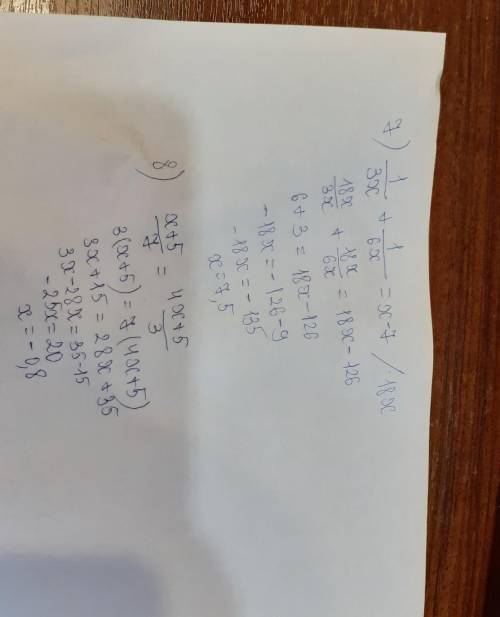 7) 1/3x + 1/6x = x-7 /·18x
18x/3x + 18x/6x = 18x - 126
6 + 3 = 18x - 126
-18x = -126 - 9
-18x = -135
x = 7,5
8) x+5/7 = 4x+5/3
3(x+5) = 7(4x+5)
3x + 15 = 28x + 35
3x - 28x = 35 - 15
-25x = 20
x = -0,8